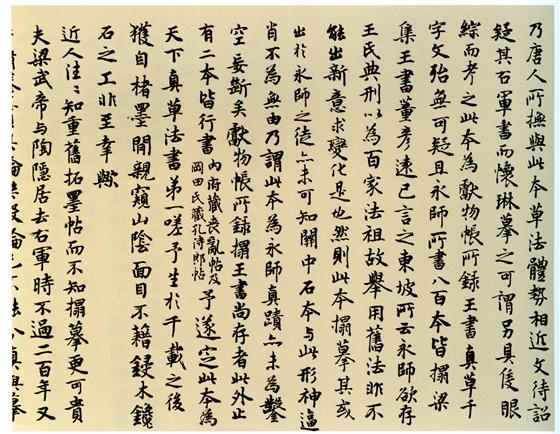 乃唐人所撫與此本草法體勢相近文待詔
疑其右軍書而懷琳摹之可謂另具隻眼
綜而考之此本為獻物帳所錄王書真草千
字文殆無可疑且永師所書八百本皆搨梁
集王書董彥遠已言之東坡所云永師欲存
王氏典刑以為百家法祖故舉用舊法非不
能出新意求變化是也然則此本搨摹其或
出於永師之徒亦未可知關中石本与此形神逼
肖不為無由乃謂此本為永師真蹟亦未為鑿
空妄斷矣獻物帳所錄搨王書尚存者此外止
有二本皆行書內府藏喪亂帖及岡田氏藏孔侍郎帖予遂定此本為
天下真草法書第一嗟予生於千載之後
獲自楮墨間親窺山陰面目不藉鋟木鐫
石之工非至幸歟
近人往〻知重舊拓墨帖而不知搨摹更可貴
夫梁武帝与陶隱居去右軍時不過二百年又